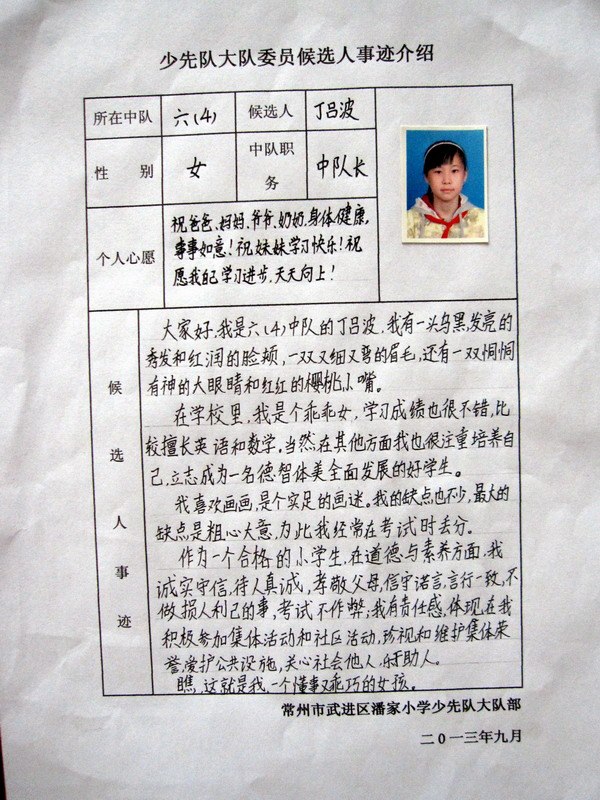 少先队大队委员候选人事迹介绍
所在中队 六(4) 候选人 丁吕波
性 别 女 中队职务 中队长
个人心愿
祝爸爸、妈妈、爷爷、奶奶,身体健康,
事事如意!祝妹妹学习快乐!祝
愿我自己学习进步,天天向上!
候选人事迹
大家好,我是六(4)中队的丁吕波,我有一头乌黑,发亮的
秀发和红润的脸颊,一双又细又弯的眉毛,还有一双炯炯
有神的大眼睛和红红的樱桃小嘴。
在学校里,我是个乖乖女,学习成绩也很不错,比
较擅长英语和数学,当然,在其他方面我也很注重培养自
己,立志成为一名德智体美全面发展的好学生。
我喜欢画画,是个实足的画迷。我的缺点也不少,最大的
缺点是粗心大意,为此我经常在考试时丢分。
作为一个合格的小学生,在道德与素养方面,我
诚实守信,待人真诚,孝敬父母,信守诺言,言行一致,不
做损人利己的事,考试不作弊;我有责任感,体现在我
积极参加集体活动和社区活动,珍视和维护集体荣
誉,爱护公共设施,关心社会他人,乐于助人。
瞧,这就是我,一个懂事又乖巧的女孩。
常州市武进区潘家小学少先队大队部
二0一三年九月